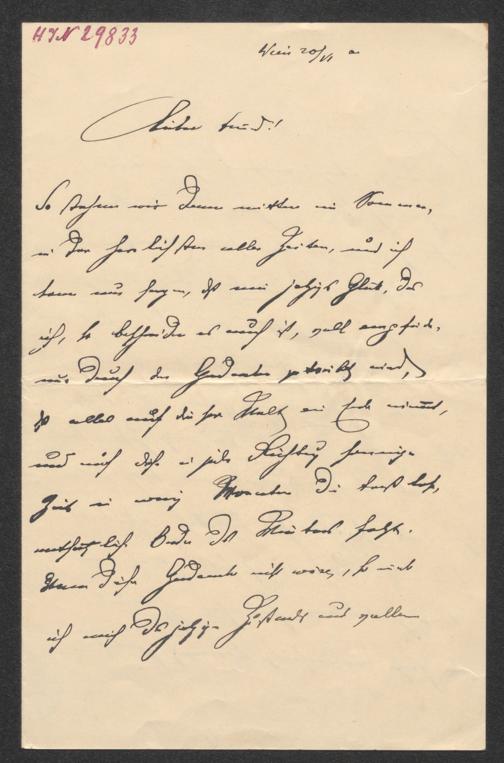 HIN 29833
Wien 20/VI
Lieber Freund!
So stehen wir denn mitten im Sommer,
in der herrlichsten aller Zeiten, und ich
kann nur sagen, daß mein jetziges Glück, das
ich, so bescheiden es auch ist, voll empfinde,
nur durch den Gedanken getrübt wird,
daß alles auf dieser Welt ein Ende nimmt,
und auch diese in jeder Richtung sonnige
Zeit in wenig Monaten
Winters
Wenn dieser Gedanke nicht wäre, so
ich mich des jetzigen Zustands aus vollem